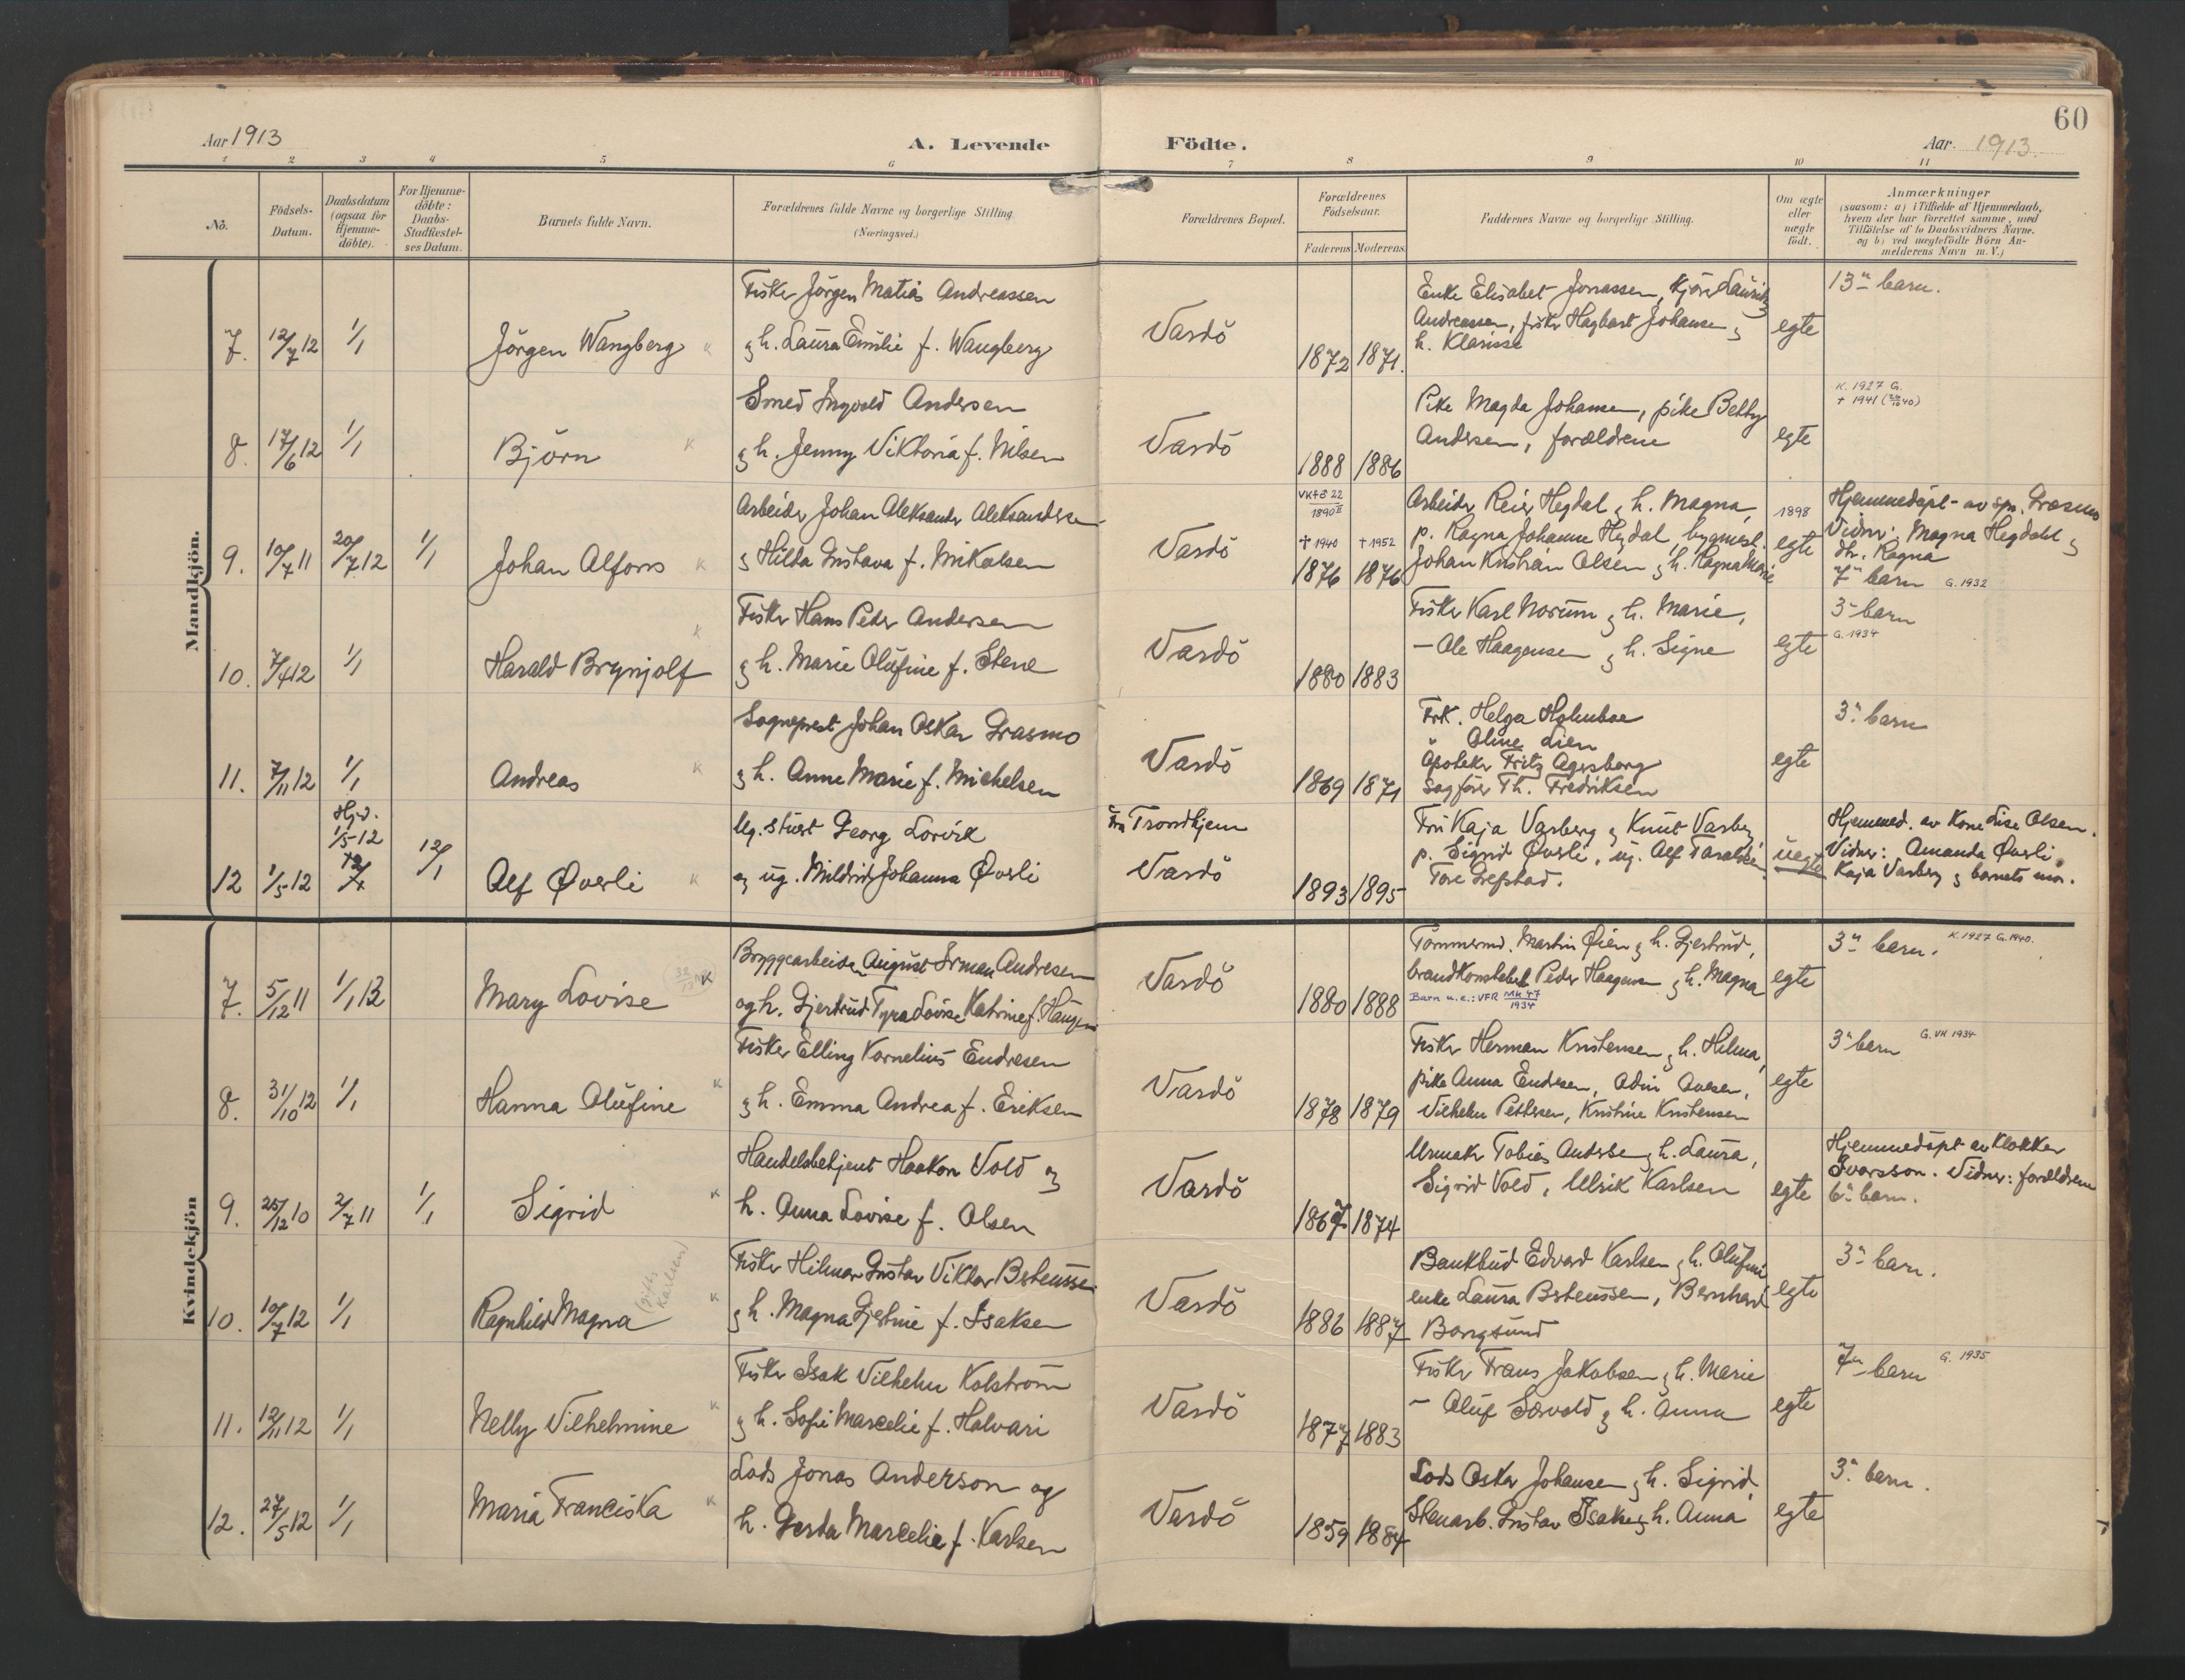 60
Aar 1913
A. Levende Födte.
Aar. 1913.
1 2 3 4 5 6 7 8 9 10 11
No.
Födsels-Datum.
Daabsdatum (ogsaa for Hjemme-döbte).
For Hjemme-döbte: Daabs-Stadfæstel-ses Datum.
Barnets fulde Navn.
Forældrenes fulde Navne og borgerlige Stilling
(Næringsvei.)
Forældrenes Bopæl.
Forældrenes Födselsaar.
Faderens Moderens
Faddernes Navne og borgerlige Stilling.
Om ægte eller uægte födt.
Anmærkninger
(saasom: a) i Tilfælde af Hjemmedaab,
hvem der har forrettet samme, med
Tilföielse af to Daabsvidners Navne.
og b) ved uægtefödte Börn An-
melderens Navn m. V.)
Mandkjön.
Fisker Jörgen Matias Andreassen
Enke Elisabet Jonassen, Kjöre Lauritz
13de barn.
7. 12/7 12 1/1 Jörgen Wangberg K
g h. Laura Emilie f. Wangberg
Vardö
1872 1871.
Andreassen, fisker Hagbart Johansen g
h. Klarisse
egte
Smed Ingvald Andersen
Pike Magda Johansen, pike Betty
K. 1927 G.
† 1941
8. 17/6 12 1/1 Björn K
g h. Jenny Viktoria f. Nilsen
Vardö
1888 1886
Andersen, forældrene
egte
Arbeider Johan Aleksander Aleksandersen
1890
Arbeider Reier Hegdal g h. Magna,
1898
Hjemmedöpt av spr. Græsmo
9. 10/7 11 20/7 12 1/1 Johan Alfons K
g Hilda Gustava f. Mikalsen
Vardö
† 1940 † 1952
1876 1876
p. Ragna Johanne Hegdal, bygmest.
Johan Kristian Olsen g h. Ragna Marie
egte
Vidner: Magna Hegdahl g
dtr. Ragna
7de barn G. 1932
Fisker Hans Peder Andersen
Fisker Karl Norum g h. Marie,
3 barn
G. 1934
10. 7/4 12 1/1 Harald Brynjolf K
g h. Marie Olufine f. Stene
Vardö
1880 1883
— Ole Haagensen g h. Signe
egte
Sogneprest Johan Oskar Græsmo
Frk. Helga Holmboe
" Oline Lien
3. barn
11. 7/11 12 1/1 Andreas K
g h. Anne Marie f. Michelsen
Vardö
1869 1871
Apoteker Fritz Agersborg
Sagförer Th. Fredriksen
egte
Hj.d.
1/5-12
Ug. stuert Georg Lorvik
Fra Trondhjem
Fru Kaja Varberg g Knut Varberg
Hjemmed. av Kone Lise Olsen.
12 1/5-12 12/1 Alf Øverli K
og ug. Mildrid Johanna Øverli
Vardö
1893 1895
p. Sigrid Øverli, ug. Alf Taraldsen
Tore Grefstad.
uegte
Vidner: Amanda Øverli,
Kaja Varberg g barnets mor.
Kvindekjön
Bryggearbeider August Irman Andresen
Tömmermd. Martin Øien g h. Gjertrud,
3de barn.
K. 1927 G. 1940.
7. 5/12 11 1/1 13 Mary Lovise K
og h. Gjertrud Tyra Lovise Katrine f. Haugen
Vardö
1880 1888
brandkonstabel Peder Haagensen g h. Magna
Barn u.e.: VFR MK 47 1934
egte
Fisker Elling Kornelius Endresen
Fisker Herman Kristensen g h. Hilma,
3de barn
G. VH 1934
8. 31/10 12 1/1 Hanna Olufine K
g h. Emma Andrea f. Eriksen
Vardö
1878 1879
pike Anna Endresen, Odin Ovesen,
Vilhelm Pettersen, Kristine Kristensen
egte
Handelsbetjent Haakon Vold og
Urmaker Tobias Andersen g h. Laura,
Hjemmedöpt av Klokker
Ivarsson. Vidner: forældrene
9. 25/12 10 2/7 11 1/1 Sigrid K
h. Anna Lovise f. Olsen
Vardö
1867 1874
Sigrid Vold, Ulrik Karlsen
egte
6de barn.
(gift Karlsen)
Fisker Hilmar Gustav Viktor Berteussen
Bankbud Edvard Karlsen g h. Olufine
3de barn.
10. 10/7 12 1/1 Ragnhild Magna K
g h. Magna Gjertine f. Isaksen
Vardö
1886 1887
enke Laura Berteussen, Bernhard
Bangsund
egte
Fisker Isak Vilhelm Kolström
Fisker Frans Jakobsen g h. Marie
7de barn
G. 1935
11. 12/11 12 1/1 Nelly Vilhelmine K
g h. Sofie Marcelie f. Halvari
Vardö
1877 1883
— Oluf Sørvold g h. Anna
egte
Lods Jonas Anderson og
Lods Oskar Johansen g h. Sigrid,
3de barn.
12. 27/5 12 1/1 Maria Franciska K
h. Gerda Marcelie f. Karlsen
Vardö
1859 1884
Stenarb. Gustav Isaksen g h. Anna
egte